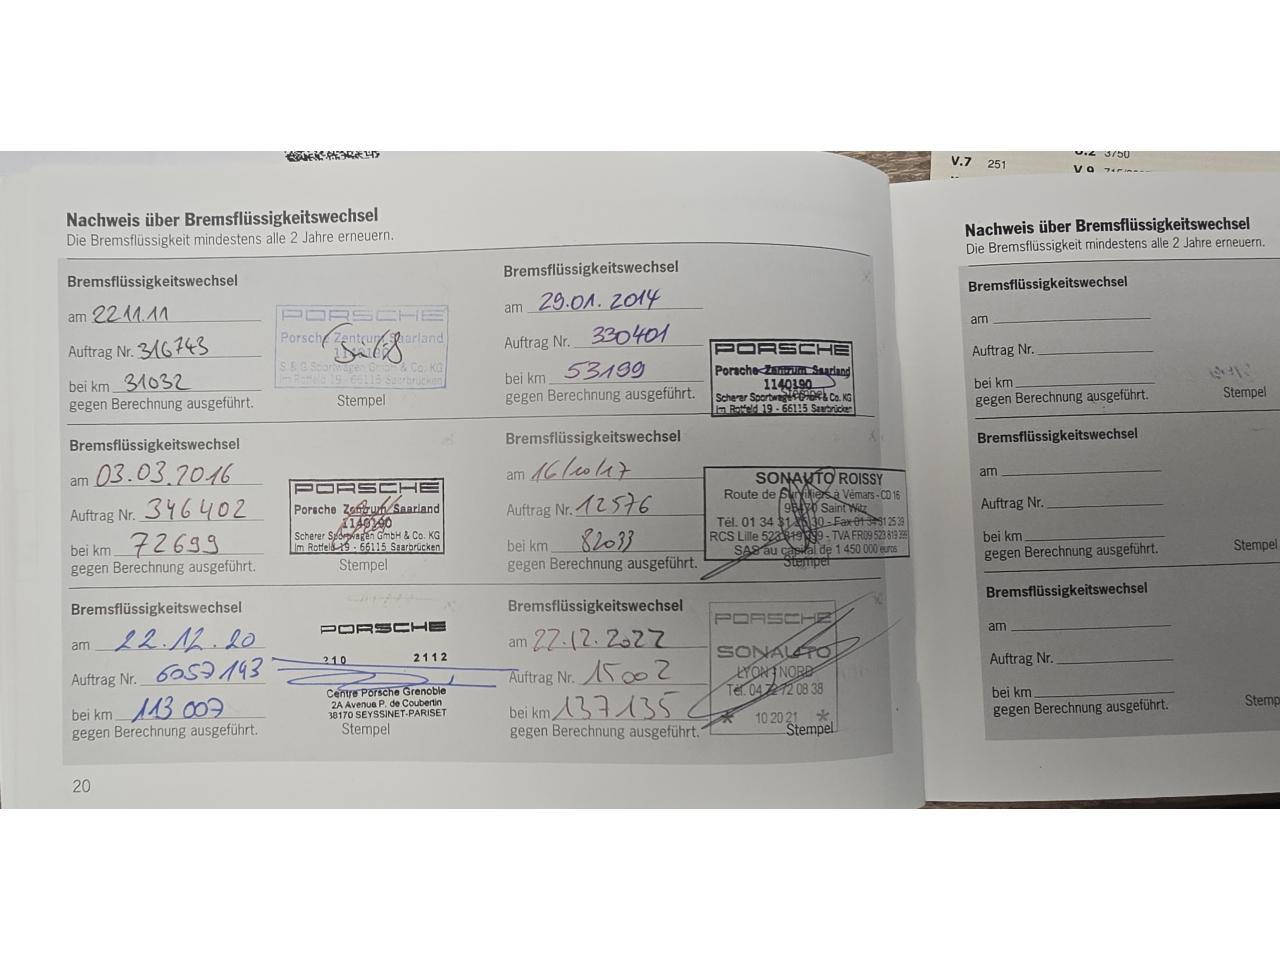 V.7 251
3750
Nachweis über Bremsflüssigkeitswechsel
Die Bremsflüssigkeit mindestens alle 2 Jahre erneuern.
Bremsflüssigkeitswechsel
am 22.11.11
Auftrag Nr. 316743
bei km 31032
gegen Berechnung ausgeführt.
PORSCHE
Porsche Zentrum Saarland
1140190
S & G Sportwagen GmbH & Co. KG
Im Rotfeld 19 - 66115 Saarbrücken
Stempel
Bremsflüssigkeitswechsel
am 29.01.2014
Auftrag Nr. 330401
bei km 53199
gegen Berechnung ausgeführt.
PORSCHE
Porsche Zentrum Saarland
1140190
Scherer Sportwagen GmbH & Co. KG
Im Rotfeld 19 - 66115 Saarbrücken
Stempel
Bremsflüssigkeitswechsel
am 03.03.2016
Auftrag Nr. 346402
bei km 72699
gegen Berechnung ausgeführt.
PORSCHE
Porsche Zentrum Saarland
1140190
Scherer Sportwagen GmbH & Co. KG
Im Rotfeld 19 - 66115 Saarbrücken
Stempel
Bremsflüssigkeitswechsel
am 16/10/17
Auftrag Nr. 12576
bei km 82033
gegen Berechnung ausgeführt.
SONAUTO ROISSY
Route de Survilliers à Vémars - CD 16
95470 Saint Witz
Tél. 01 34 31 Fax 01 34 31 25 39
RCS Lille 523 819 399 - TVA FR09 523 819 399
SAS au capital de 1 450 000 euros
Stempel
Bremsflüssigkeitswechsel
am 22.12.20
Auftrag Nr. 6057143
bei km 113007
gegen Berechnung ausgeführt.
PORSCHE
210 2112
Centre Porsche Grenoble
2A Avenue P. de Coubertin
38170 SEYSSINET-PARISET
Stempel
Bremsflüssigkeitswechsel
am 22.12.2022
Auftrag Nr. 15002
bei km 137135
gegen Berechnung ausgeführt.
PORSCHE
SONAUTO
LYON NORD
Tél. 04 72 72 08 38
* 10 20 21 *
Stempel
20
Nachweis über Bremsflüssigkeitswechsel
Die Bremsflüssigkeit mindestens alle 2 Jahre erneuern.
Bremsflüssigkeitswechsel
am
Auftrag Nr.
bei km
gegen Berechnung ausgeführt.
Stempel
Bremsflüssigkeitswechsel
am
Auftrag Nr.
bei km
gegen Berechnung ausgeführt.
Stempel
Bremsflüssigkeitswechsel
am
Auftrag Nr.
bei km
gegen Berechnung ausgeführt.
Stemp